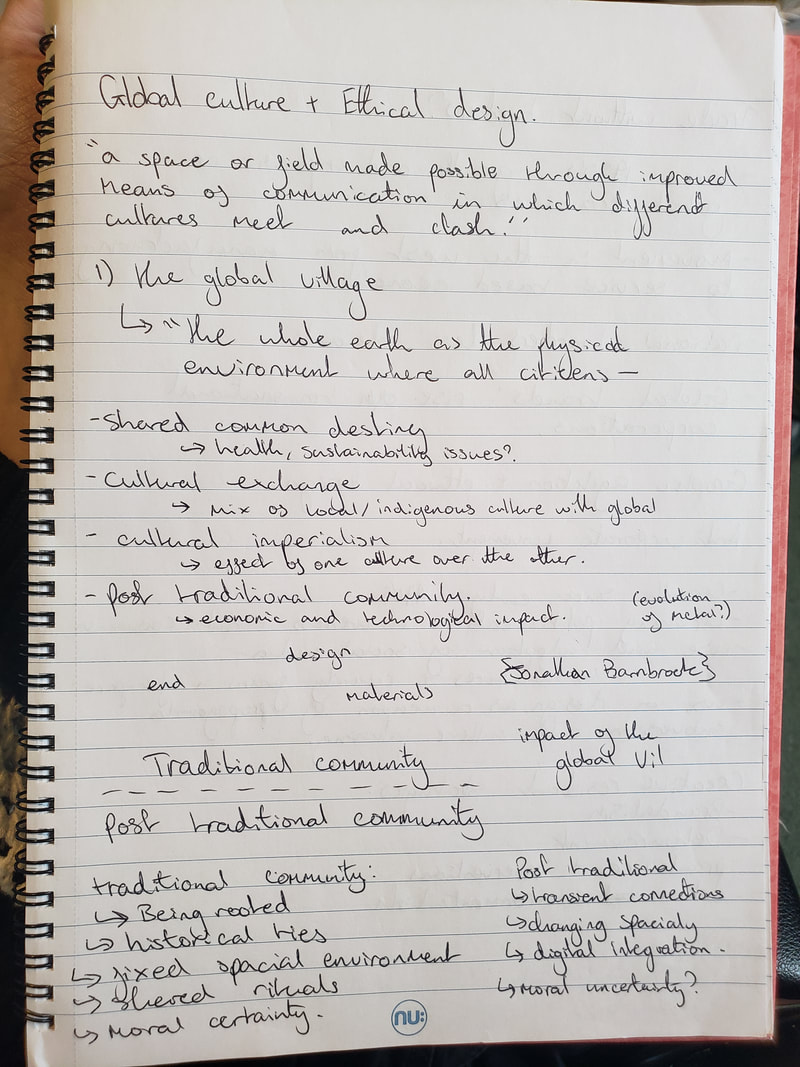 Global culture + Ethical design.
"a space or field made possible through improved
means of communication in which different
cultures meet and clash!"
1) the global village
↳ "the whole earth as the physical
environment where all citizens —
- shared common destiny
↳ health, sustainability issues?
- cultural exchange
↳ mix of local/indigenous culture with global
- cultural imperialism
↳ effect of one culture over the other.
- post traditional community.
↳ economic and technological impact.
(evolution
of metal?)
design
end
materials
{Jonathan Barnbrook}
impact of the
global Vil
Traditional community
post traditional community
traditional community:
↳ Being rooted
↳ historical ties
↳ fixed spacial environment
↳ shared rituals
↳ moral certainty.
Post traditional
↳ transient connections
↳ changing spacialy
↳ digital integration.
↳ moral uncertainty?
nu: